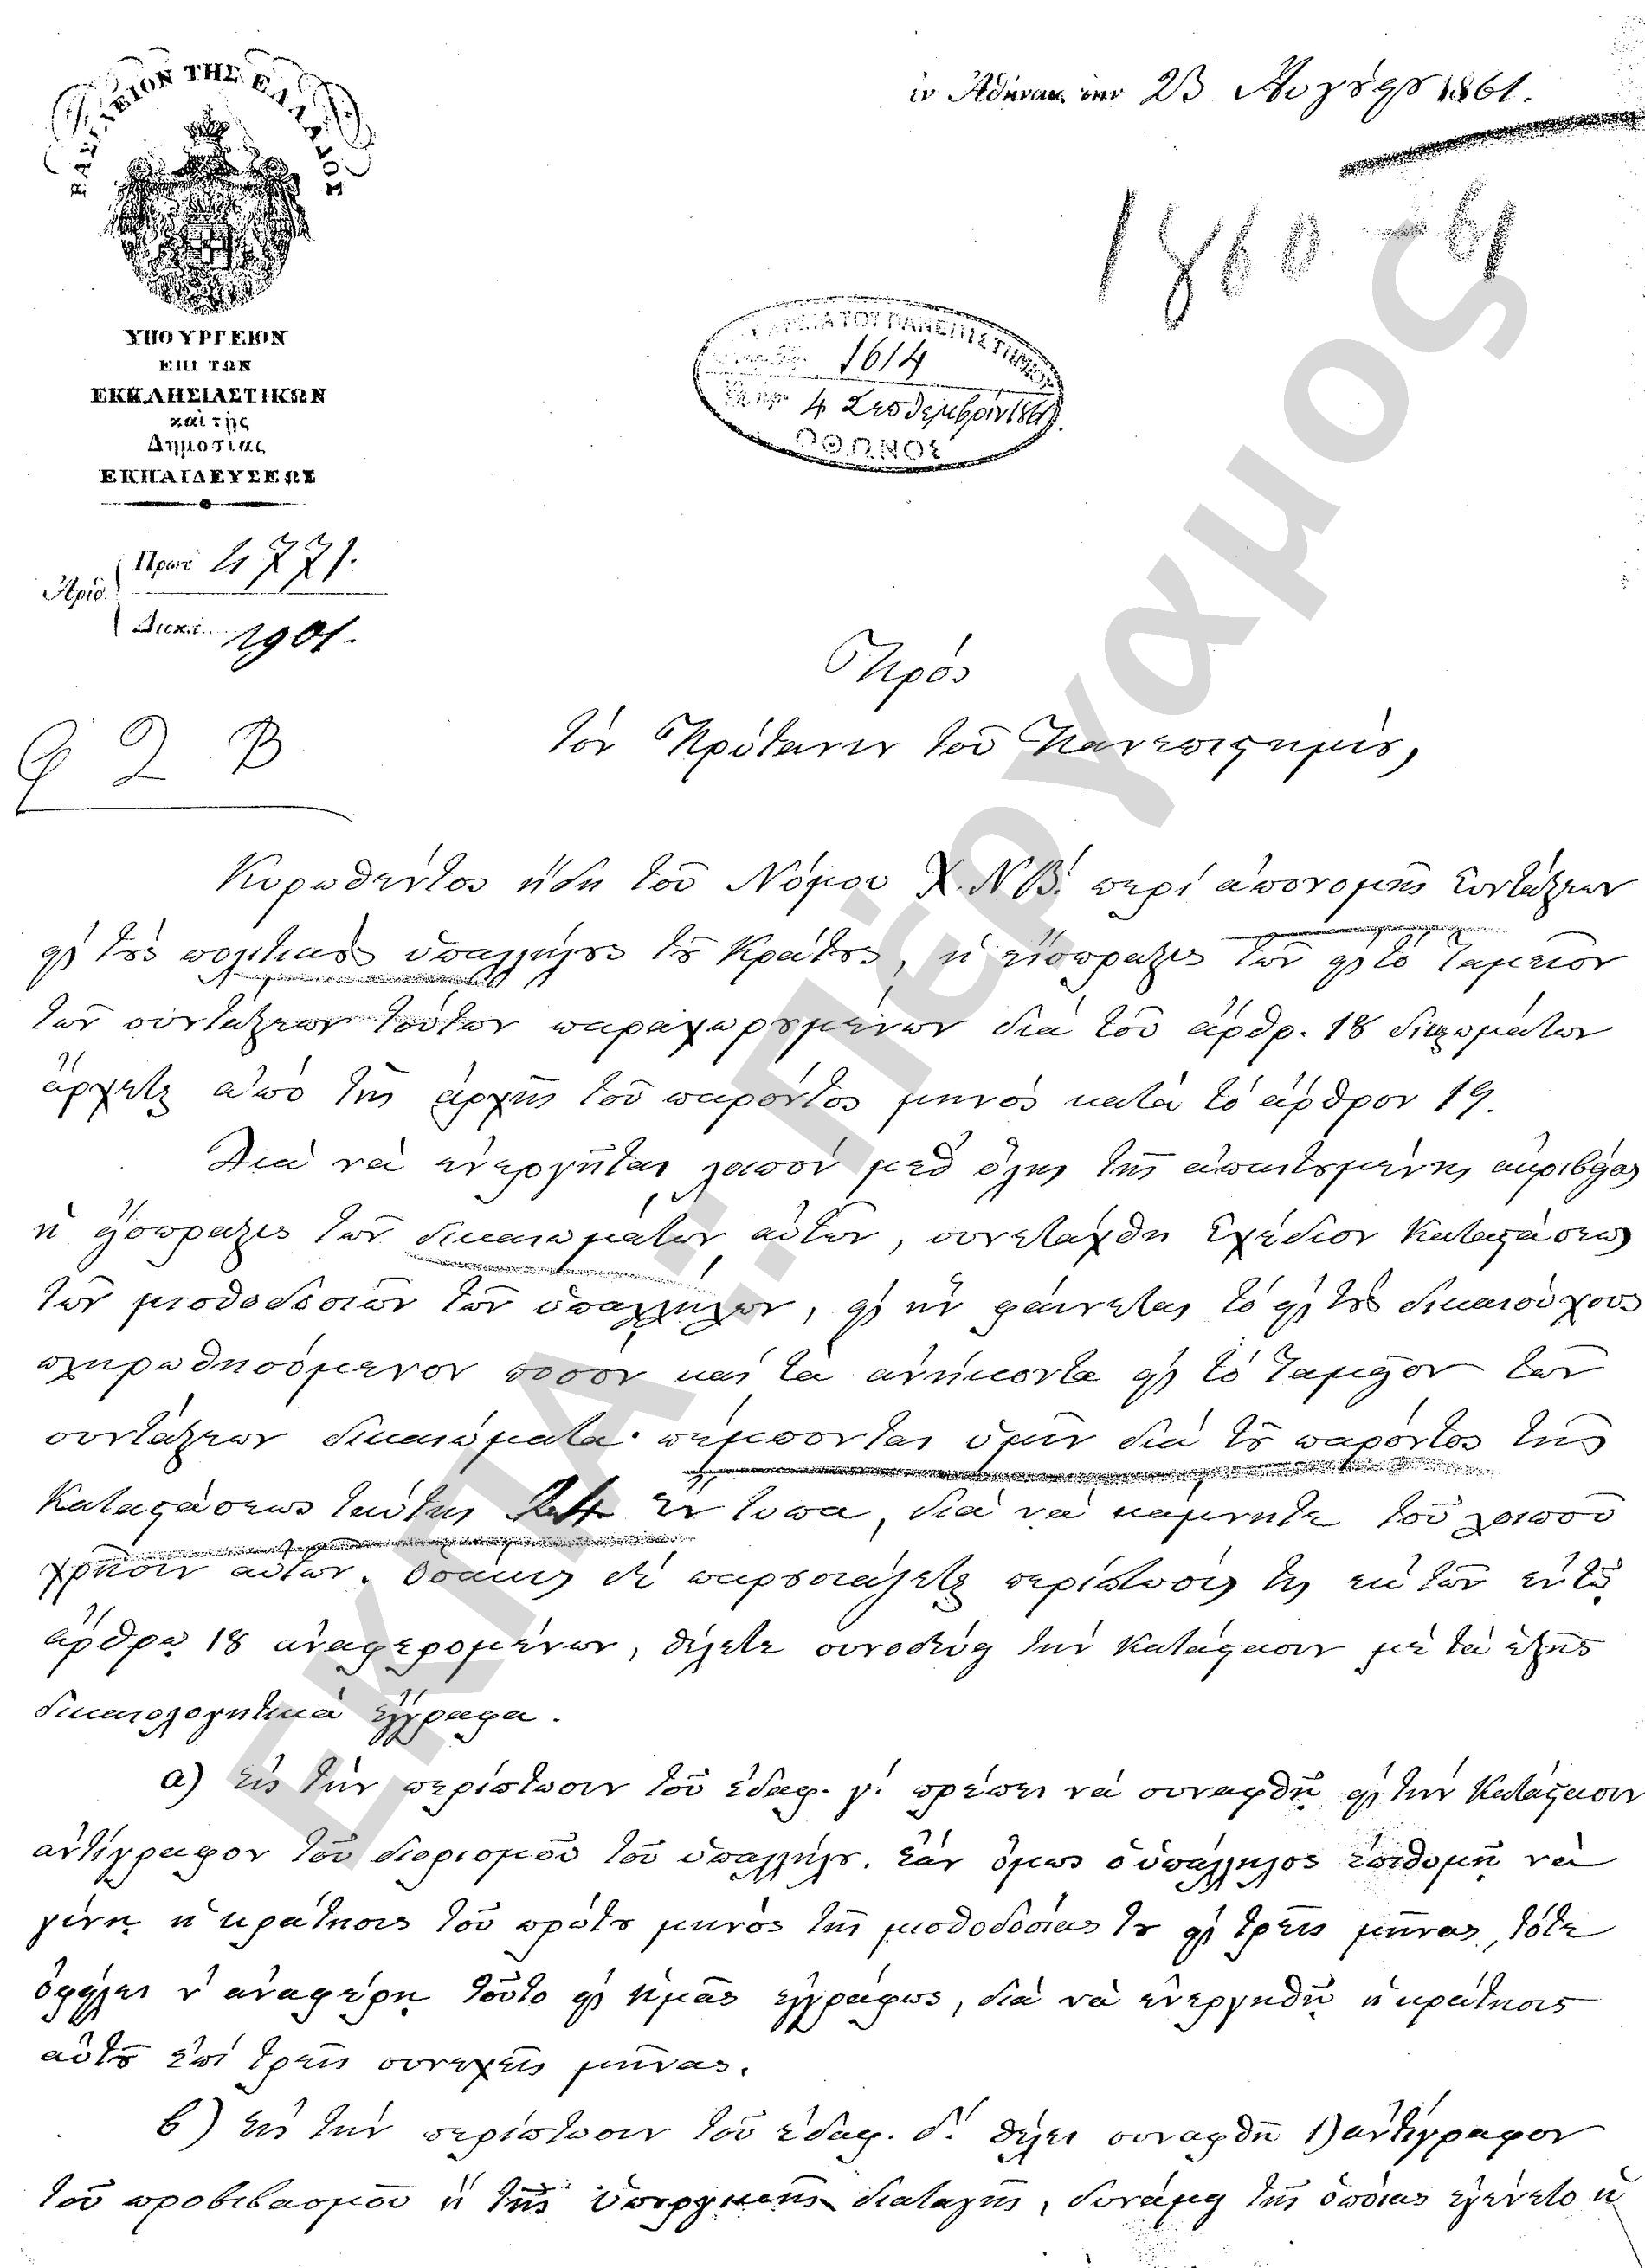 ἐν Ἀθήναις τὴν 23 Αὐγούστου 1861.
ΒΑΣΙΛΕΙΟΝ ΤΗΣ ΕΛΛΑΔΟΣ
1860-61
ΥΠΟΥΡΓΕΙΟΝ
ΕΠΙ ΤΩΝ
ΕΚΚΛΗΣΙΑΣΤΙΚΩΝ
καὶ τῆς
Δημοσίας
ΕΚΠΑΙΔΕΥΣΕΩΣ
ΤΟΥ ΠΑΝΕΠΙΣΤΗΜΙΟΥ
1614
4 Σεπτεμβρίου 1861.
ΟΘΩΝΟΣ
Ἀριθ. Πρωτ. 4771.
Διεκπ. 1901.
Πρὸς
τὸν Πρύτανιν τοῦ Πανεπιστημίου,
Κυρωθέντος ἤδη τοῦ Νόμου Χ.Ν.Β. περὶ ἀπονομῆς συντάξεων
εἰς τοὺς πολιτικοὺς ὑπαλλήλους τοῦ Κράτους, ἡ εἴσπραξις τῶν εἰς τὸ Ταμεῖον
τῶν συντάξεων τούτων παραχωρουμένων διὰ τοῦ ἄρθρ. 18 δικαιωμάτων
ἄρχεται ἀπὸ τῆς ἀρχῆς τοῦ παρόντος μηνὸς κατὰ τὸ ἄρθρον 19.
Διὰ νὰ ἐνεργῆται λοιπὸν μεθ' ὅλης τῆς ἀπαιτουμένης ἀκριβείας
ἡ εἴσπραξις τῶν δικαιωμάτων αὐτῶν, συνετάχθη Σχέδιον Καταστάσεως
τῶν μισθοδοσιῶν τῶν ὑπαλλήλων, εἰς ἣν φαίνεται τὸ εἰς τοὺς δικαιούχους
πληρωθησόμενον ποσὸν καὶ τὰ ἀνήκοντα εἰς τὸ Ταμεῖον τῶν
συντάξεων δικαιώματα· πέμπονται ὑμῖν διὰ τοῦ παρόντος τῆς
Καταστάσεως ταύτης 24 ἔντυπα, διὰ νὰ κάμνητε τοῦ λοιποῦ
χρῆσιν αὐτῶν. Ὁσάκις δὲ παρουσιάζεται περίπτωσίς τις ἐκ τῶν ἐν τῷ
ἄρθρῳ 18 ἀναφερομένων, θέλετε συνοδεύει τὴν Κατάστασιν μὲ τὰ ἑξῆς
δικαιολογητικὰ ἔγγραφα.
α) Εἰς τὴν περίπτωσιν τοῦ ἐδαφ. γ. πρέπει νὰ συναφθῇ εἰς τὴν Κατάστασιν
ἀντίγραφον τοῦ διορισμοῦ τοῦ ὑπαλλήλου. Ἐὰν ὅμως ὁ ὑπάλληλος ἐπιθυμῇ νὰ
γίνῃ ἡ κράτησις τοῦ πρώτου μηνὸς τῆς μισθοδοσίας του εἰς τρεῖς μῆνας, τότε
ὀφείλει ν' ἀναφέρῃ τοῦτο εἰς ἡμᾶς ἐγγράφως, διὰ νὰ ἐνεργηθῇ ἡ κράτησις
αὐτοῦ ἐπὶ τρεῖς συνεχεῖς μῆνας.
β) Εἰς τὴν περίπτωσιν τοῦ ἐδαφ. δ. θέλει συναφθῆ 1) ἀντίγραφον
τοῦ προβιβασμοῦ ἢ τῆς ὑπουργικῆς διαταγῆς, δυνάμει τῆς ὁποίας ἐγένετο ἡ
ΕΚΠΑ - Πέργαμος